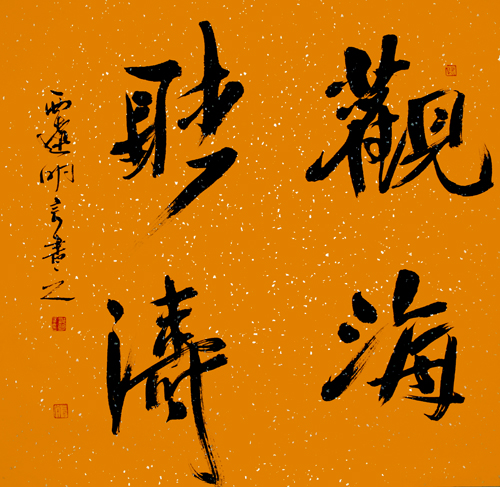 觀海
聽濤
西明言書之